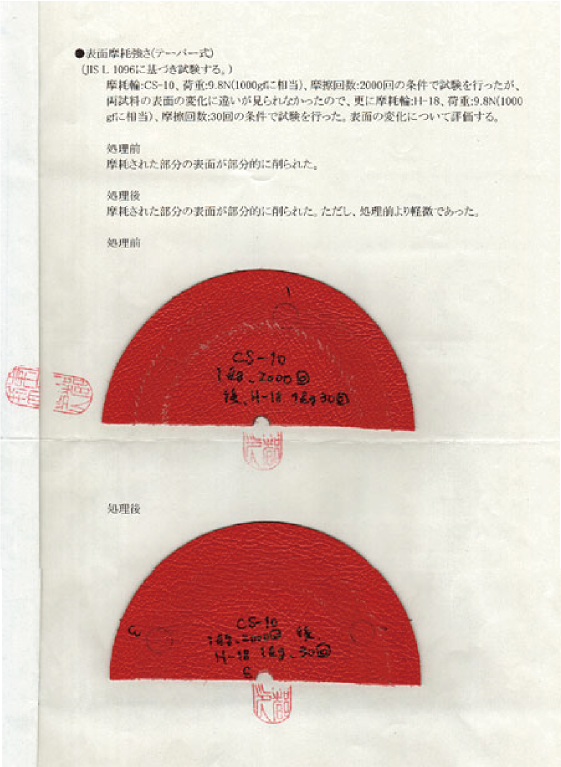 ●表面摩耗強さ(テーバー式)
(JIS L 1096に基づき試験する。)
摩耗輪:CS-10、荷重:9.8N(1000gfに相当)、摩擦回数:2000回の条件で試験を行ったが、
両試料の表面の変化に違いが見られなかったので、更に摩耗輪:H-18、荷重:9.8N(1000
gfに相当)、摩擦回数:30回の条件で試験を行った。表面の変化について評価する。
処理前
摩耗された部分の表面が部分的に削られた。
処理後
摩耗された部分の表面が部分的に削られた。ただし、処理前より軽微であった。
処理前
1
CS-10
1kg、2000回
後、H-18 1kg 30回
処理後
3
CS-10
1kg、2000回 後
H-18 1kg、30回